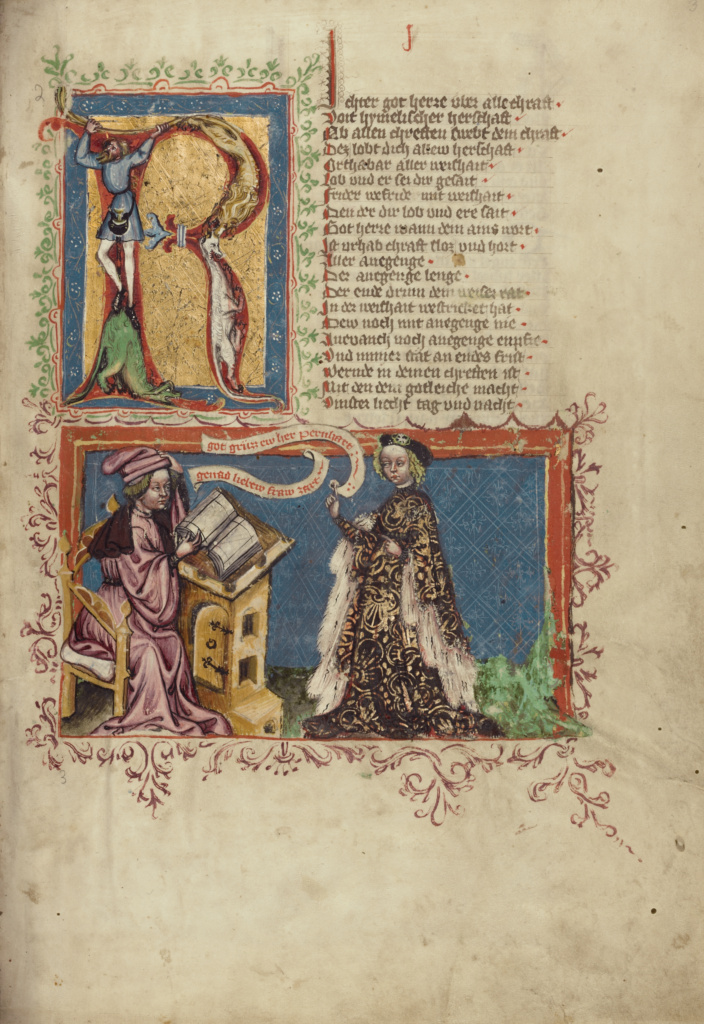 J
Ichter got herre vber alle chraft
Voit hymelischer herschaft
Ob allen chreften swebt dein chraft
Dez lobt dich allew herschaft
Orthabær aller weishait
Lob vnd er sei dir gesait
Frider wefride mit weishait
Den der dir lob vnd ere sait
Got herre wann dein ains wort
Ist urhab chraft sloz vnd hort
Aller anegenge
Der anegenge lenge
Der ende drum dein weiser rat
In der weishait westricket hat
Dew noch mit anegenge nie
Anevanch noch anegenge enpfie
Vnd nimmer stat an endes frist
Wernde in deinen chreften ist
Mit den dein gotleiche macht
Vinster liecht tag vnd nacht
got grüzz ew her pernhart
genad liebew fraw